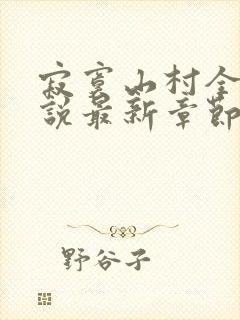 寂寞山村全
說最新章節
野谷子